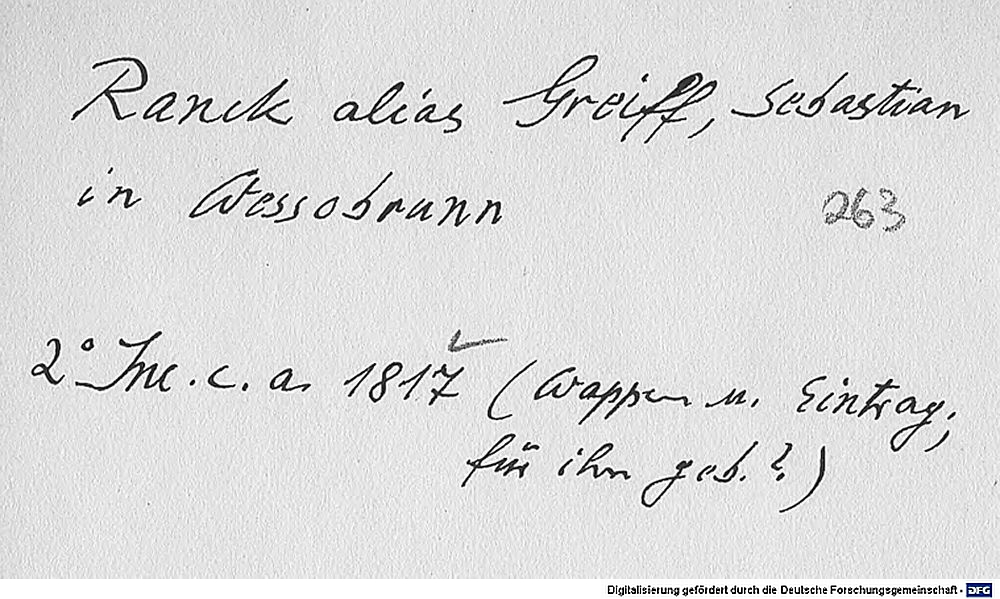 Ranck alias Greiff, Sebastian
in Wessobrunn
263
2° Inc. c. a. 1817 (Wappen u. Eintrag;
für ihn geb.?)
Digitalisierung gefördert durch die Deutsche Forschungsgemeinschaft - DFG